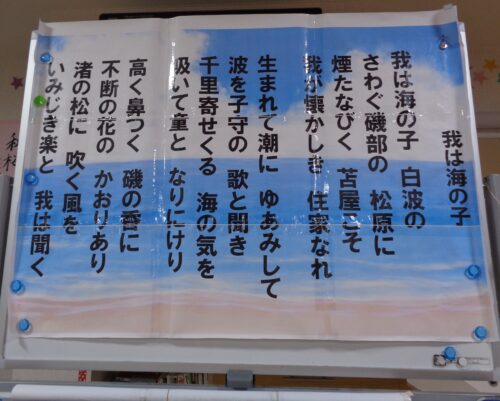 我は海の子
我は海の子 白波の
さわぐ磯部の 松原に
煙たなびく 苫屋こそ
我が懐かしき 住家なれ
生まれて潮に ゆあみして
波を子守の 歌と聞き
千里寄せくる 海の気を
吸いて童と なりにけり
高く鼻つく 磯の香に
不断の花の かおりあり
渚の松に 吹く風を
いみじき楽と 我は聞く